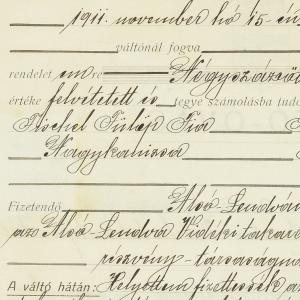 1911. november hó 15-én
váltónál fogva
rendelet em re Négyszázöt
értéke felvétetett és tegye számolásba tud
Fischel Fülöp Fia
Nagykanizsa
Fizetendő Alsó-Lendván
azo Alsó-Lendva Vidéki takaré
részvény-társaságná
A váltó hátán: Helyettem fizettessék az